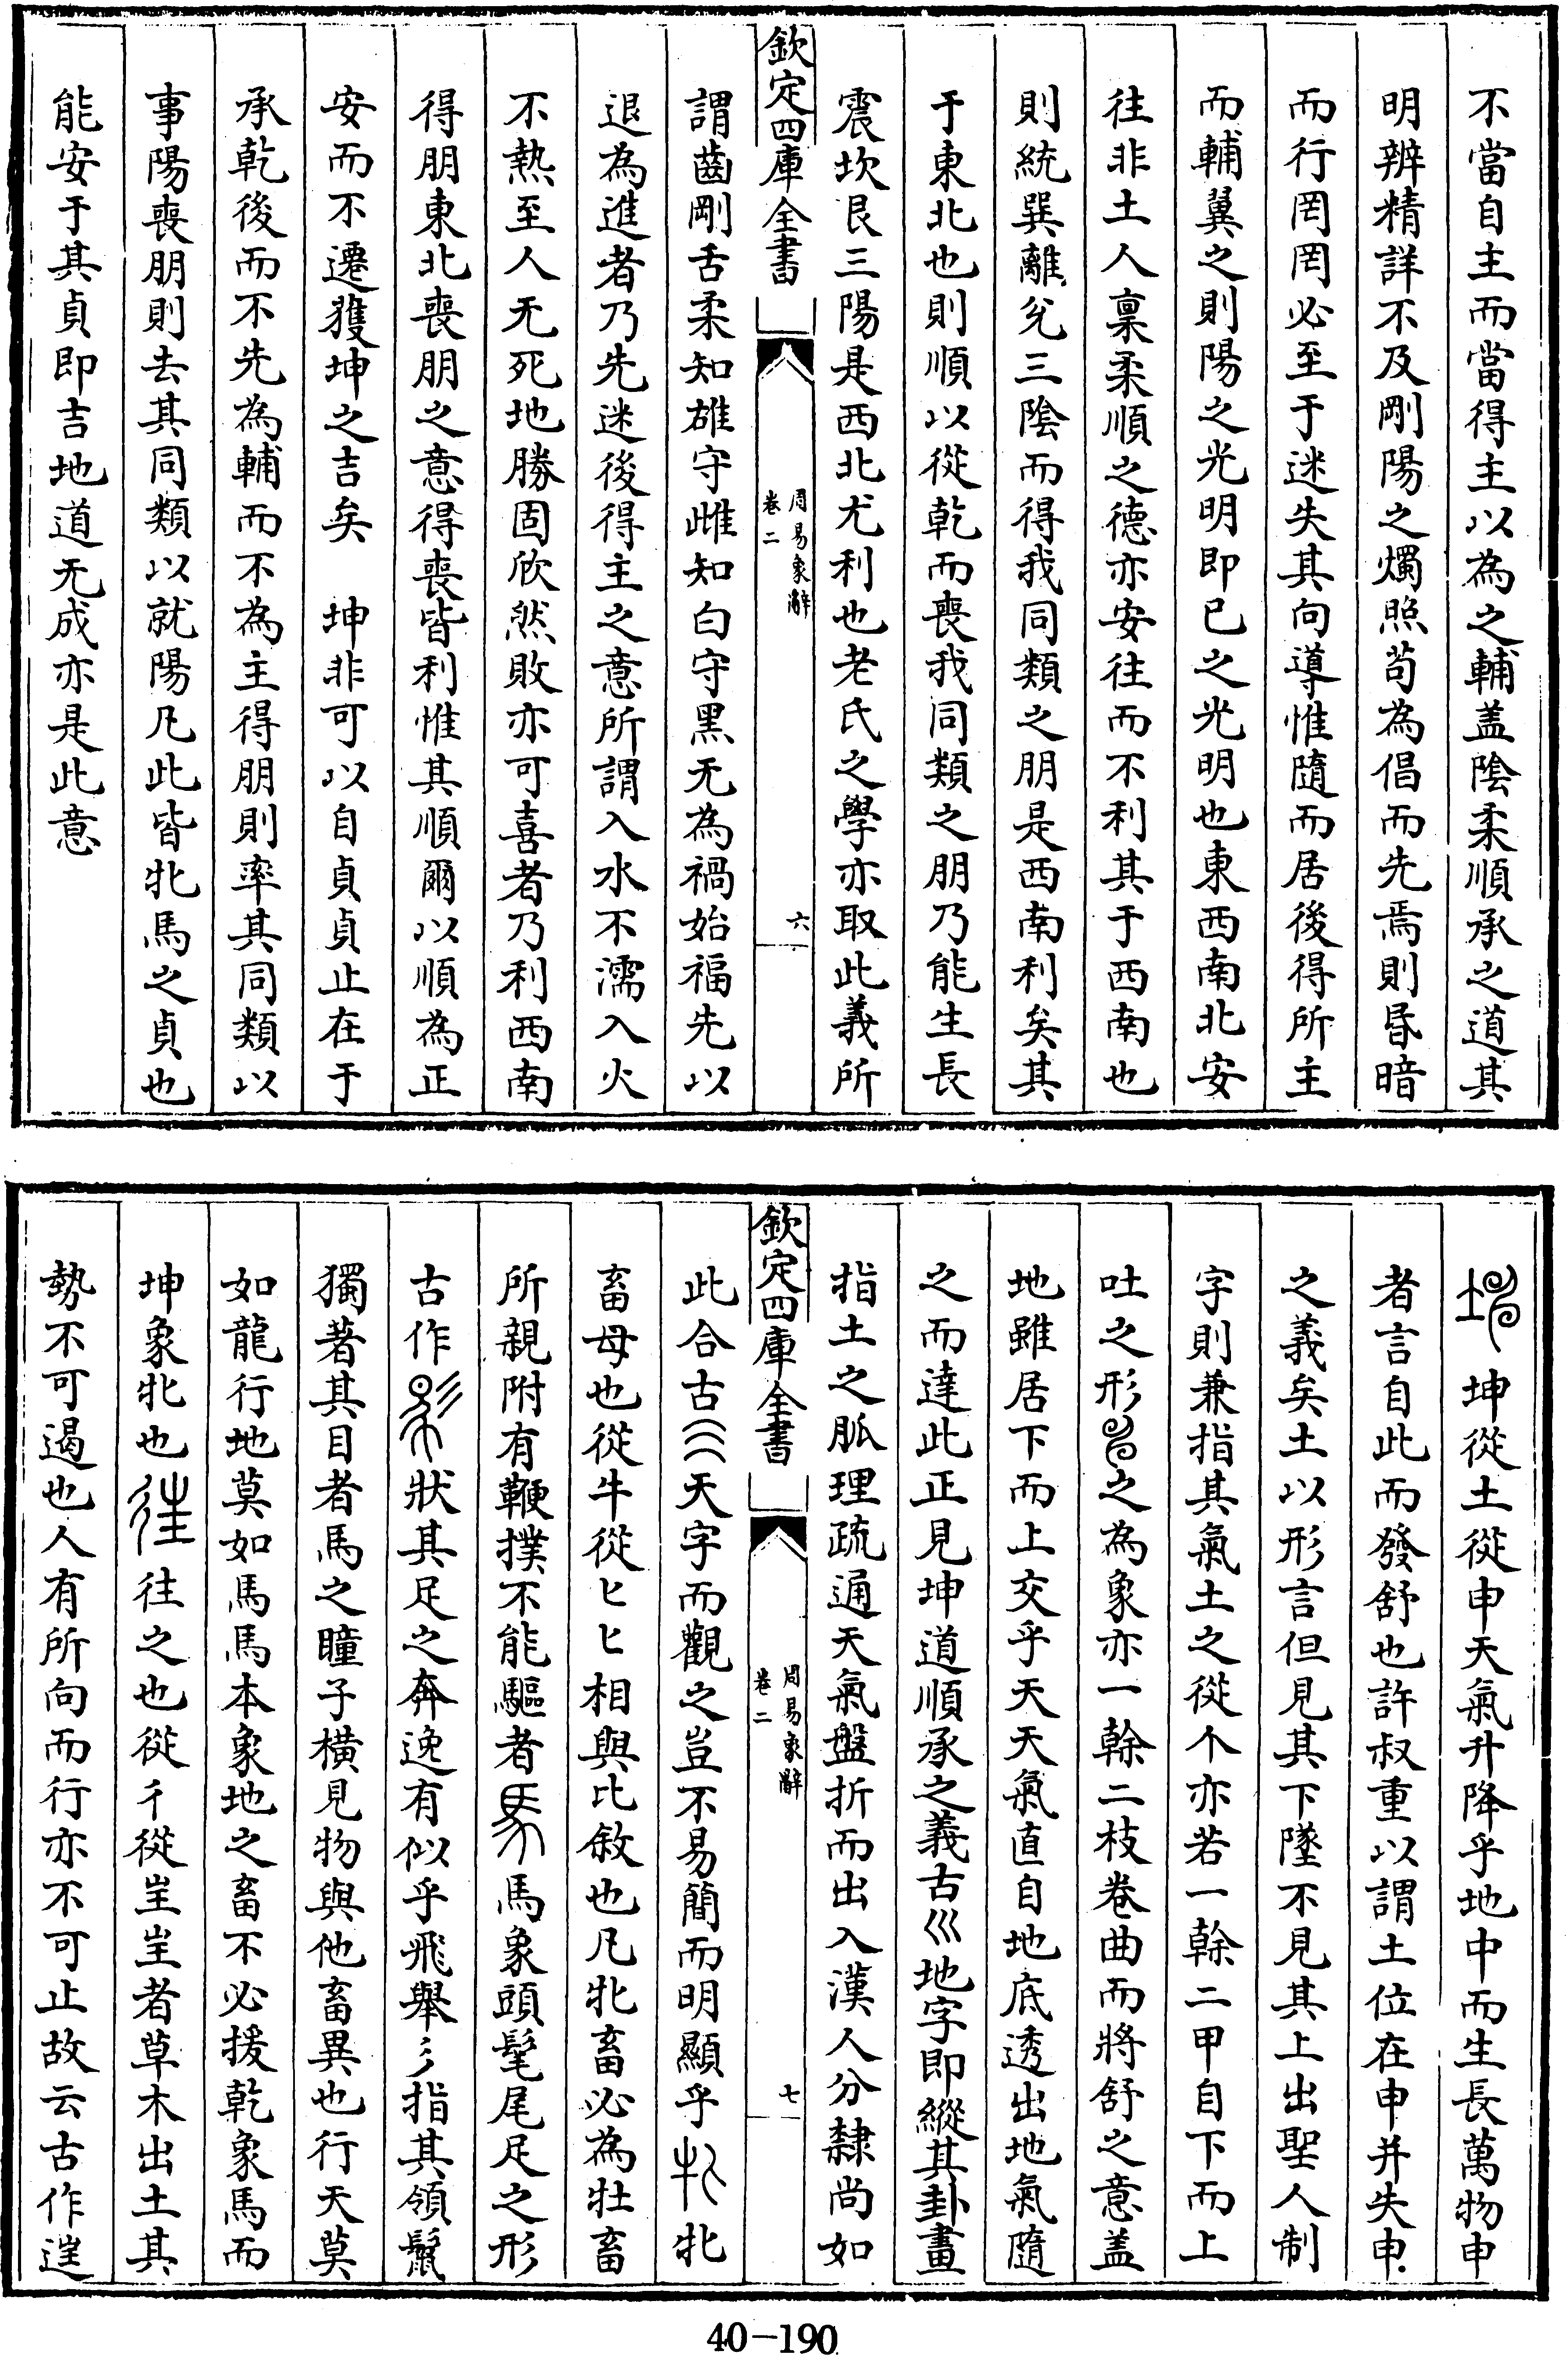 不當自主而當得主以為之輔盖隂柔順承之道其
明辨精詳不及剛陽之燭照苟為倡而先焉則昏暗
而行罔罔必至于迷失其向導惟隨而居後得所主
而輔翼之則陽之光明即已之光明也東西南北安
往非土人稟柔順之德亦安往而不利其于西南也
則統巽離兊三隂而得我同類之朋是西南利矣其
于東北也則順以從乾而喪我同類之朋乃能生長
震坎艮三陽是西北尤利也老氏之學亦取此義所
欽定四庫全書
周易象辭
卷二
六
謂齒剛舌柔知雄守雌知白守黑无為禍始福先以
退為進者乃先迷後得主之意所謂入水不濡入火
不熱至人无死地勝固欣然敗亦可喜者乃利西南
得朋東北喪朋之意得喪皆利惟其順爾以順為正
安而不遷獲坤之吉矣　坤非可以自貞貞止在于
承乾後而不先為輔而不為主得朋則率其同類以
事陽喪朋則去其同類以就陽凡此皆牝馬之貞也
能安于其貞即吉地道无成亦是此意
坤從土從申天氣升降乎地中而生長萬物申
者言自此而發舒也許叔重以謂土位在申并失申
之義矣土以形言但見其下墜不見其上出聖人制
字則兼指其氣土之從个亦若一榦二甲自下而上
吐之形之為象亦一榦二枝卷曲而將舒之意盖
地雖居下而上交乎天天氣直自地底透出地氣隨
之而達此正見坤道順承之義古巛地字即縱其卦畫
指土之脈理疏通天氣盤折而出入漢人分隸尚如
欽定四庫全書
周易象辭
卷二
七
此合古天字而觀之豈不易簡而明顯乎牝
畜母也從牛從匕匕相與比敘也凡牝畜必為牡畜
所親附有鞭撲不能驅者馬象頭髦尾足之形
古作狀其足之奔逸有似乎飛舉彡指其領鬣
獨著其目者馬之瞳子橫見物與他畜異也行天莫
如龍行地莫如馬馬本象地之畜不必援乾象馬而
坤象牝也往之也從彳從㞷㞷者草木出土其
勢不可遏也人有所向而行亦不可止故云古作𨓹
40-190